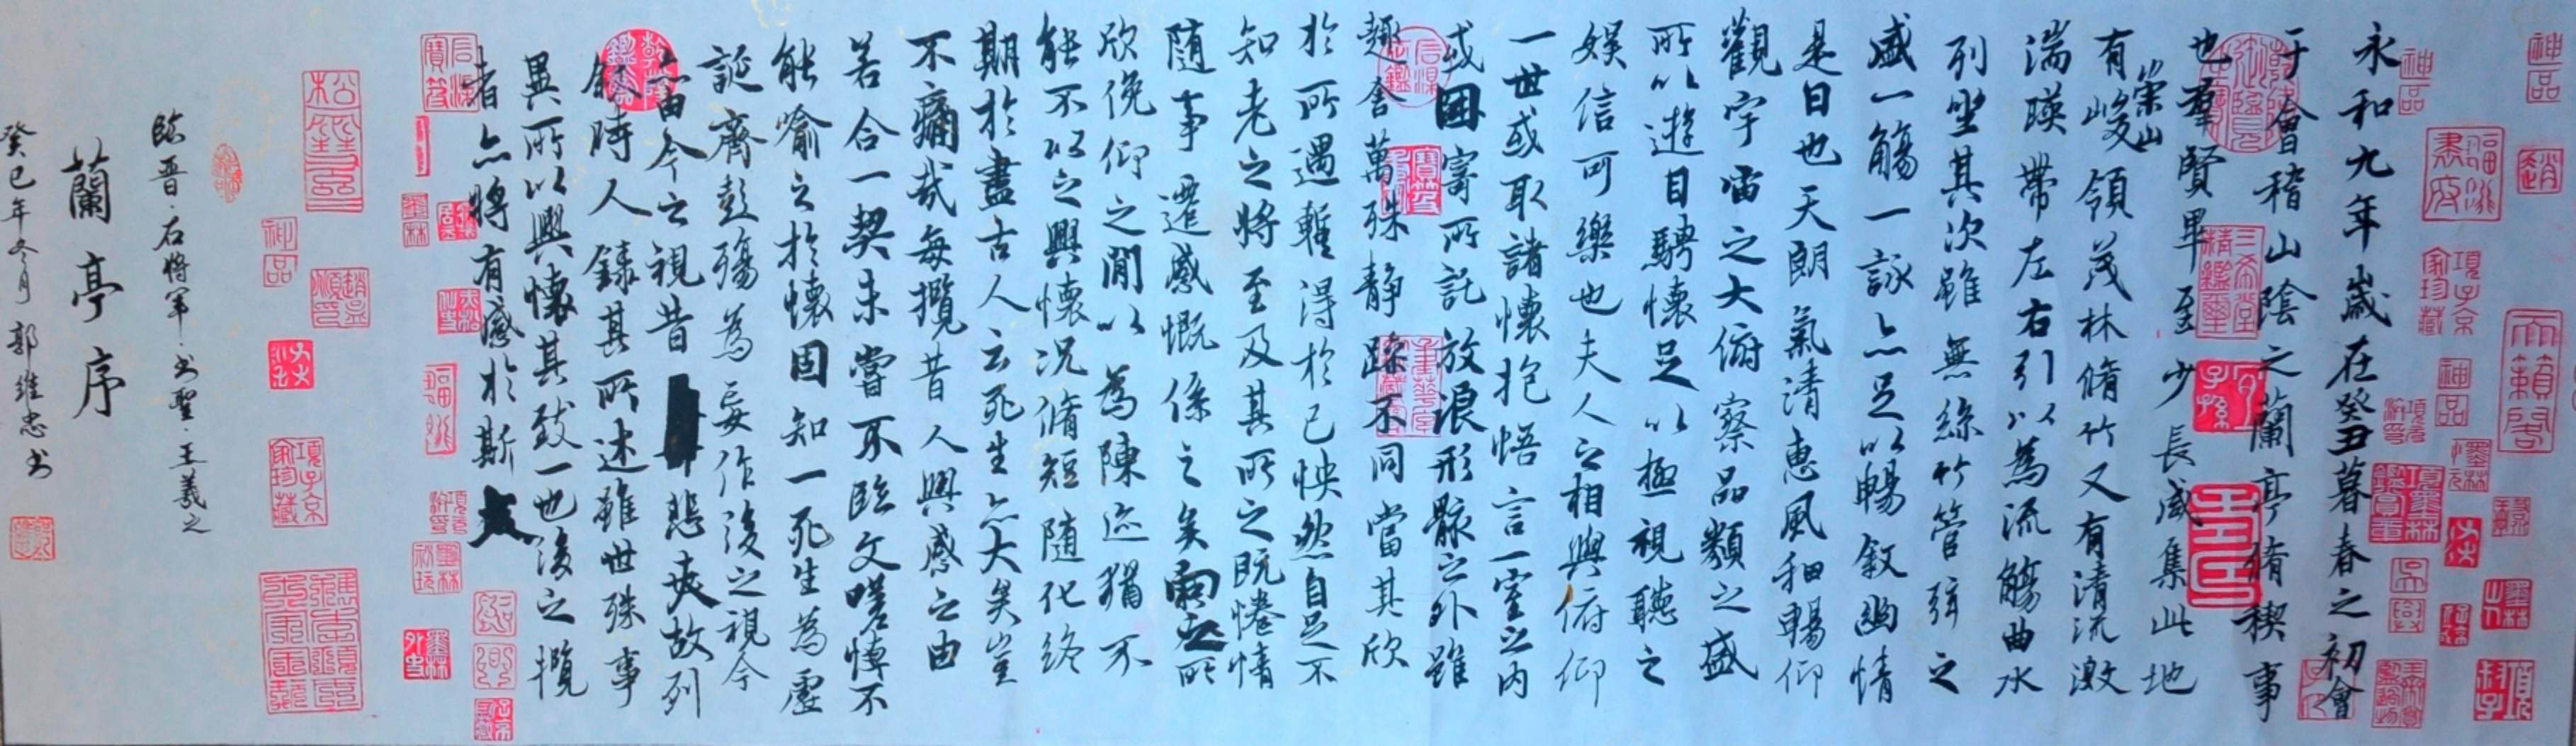 永和九年歲在癸丑暮春之初會
于會稽山陰之蘭亭脩稧事
也羣賢畢至少長咸集此地
有崇山峻領茂林脩竹又有清流激
湍暎帶左右引以為流觴曲水
列坐其次雖無絲竹管弦之
盛一觴一詠亦足以暢敘幽情
是日也天朗氣清惠風和暢仰
觀宇宙之大俯察品類之盛
所以遊目騁懷足以極視聽之
娛信可樂也夫人之相與俯仰
一世或取諸懷抱悟言一室之內
或因寄所託放浪形骸之外雖
趣舍萬殊靜躁不同當其欣
於所遇蹔得於己怏然自足不
知老之將至及其所之既惓情
隨事遷感慨係之矣向之所
欣俛仰之閒以為陳迹猶不
能不以之興懷況脩短隨化終
期於盡古人云死生亦大矣豈
不痛哉每攬昔人興感之由
若合一契未嘗不臨文嗟悼不
能喻之於懷固知一死生為虛
誕齊彭殤為妄作後之視今
亦由今之視昔悲夫故列
敘時人錄其所述雖世殊事
異所以興懷其致一也後之攬
者亦將有感於斯文
臨晉·右將軍·书聖·王羲之
蘭亭序
癸巳年冬月 郭維忠书
神品
神品
神品
神品
項子京家珍藏
項子京家珍藏